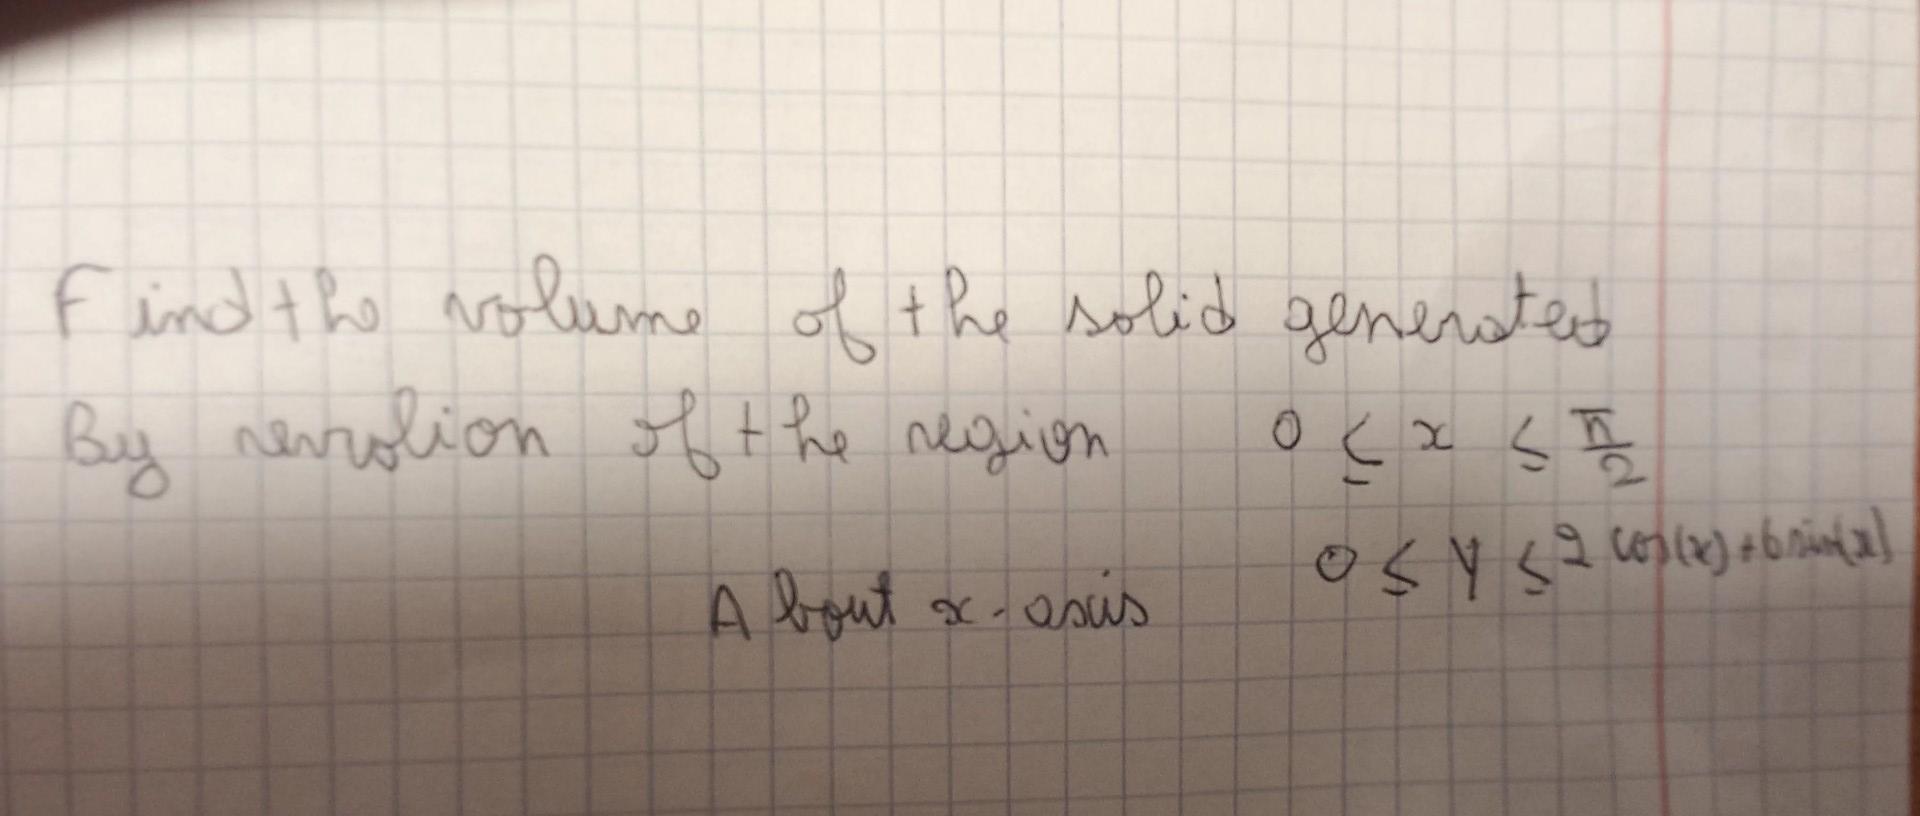 Find the volume of the solid generated
By revolion of the region 0 ≤ x ≤ π/2
0 ≤ y ≤ 2 cos(x) + 6 sin(x)
About x-axis